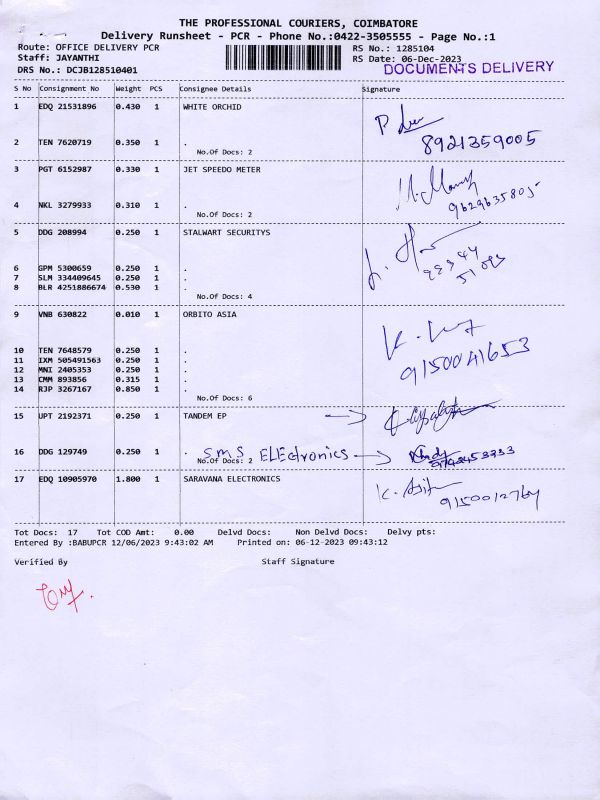 THE PROFESSIONAL COURIERS, COIMBATORE
Delivery Runsheet - PCR - Phone No.:0422-3505555 - Page No.:1
Route: OFFICE DELIVERY PCR RS No.: 1285104
Staff: JAYANTHI RS Date: 06-Dec-2023
DRS No.: DCJB128510401 DOCUMENTS DELIVERY
S No Consignment No Weight PCS Consignee Details Signature
1 EDQ 21531896 0.430 1 WHITE ORCHID
2 TEN 7620719 0.350 1 . 8921359005
No.Of Docs: 2
3 PGT 6152987 0.330 1 JET SPEEDO METER
4 NKL 3279933 0.310 1 . 9629635805
No.Of Docs: 2
5 DDG 208994 0.250 1 STALWART SECURITYS
6 GPM 5300659 0.250 1 .
7 SLM 334409645 0.250 1 .
8 BLR 4251886674 0.530 1 .
No.Of Docs: 4
9 VNB 630822 0.010 1 ORBITO ASIA
10 TEN 7648579 0.250 1 . 9150041653
11 IXM 505491563 0.250 1 .
12 MNI 2405353 0.250 1 .
13 CMM 893856 0.315 1 .
14 RJP 3267167 0.850 1 .
No.Of Docs: 6
15 UPT 2192371 0.250 1 TANDEM EP
16 DDG 129749 0.250 1 . SMS ELEctronics
No.Of Docs: 2
17 EDQ 10905970 1.800 1 SARAVANA ELECTRONICS
Tot Docs: 17 Tot COD Amt: 0.00 Delvd Docs: Non Delvd Docs: Delvy pts:
Entered By :BABUPCR 12/06/2023 9:43:02 AM Printed on: 06-12-2023 09:43:12
Verified By Staff Signature